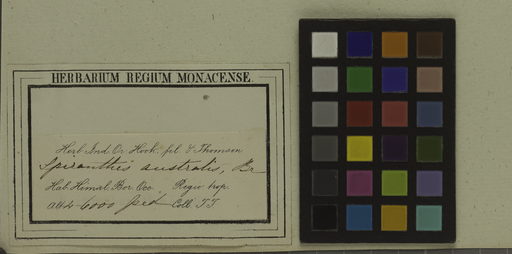 HERBARIUM REGIUM MONACENSE.
Herb. Ind. Or. Hook. fil. & Thomson
Spiranthis australis, Br
Hab. Himal. Bor. Occ. Regio trop.
alt. 6000 ped Coll. T.T.